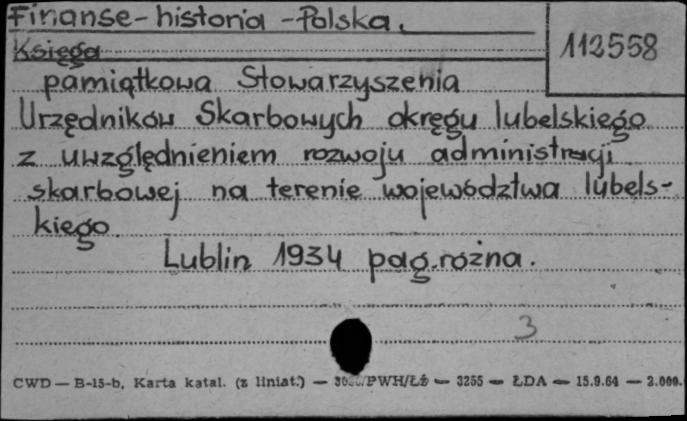 Finanse - historia - Polska.
112558
Księga
pamiątkowa Stowarzyszenia
Urzędników Skarbowych okręgu lubelskiego
z uwzględnieniem rozwoju administracji
skarbowej na terenie województwa lubels-
kiego
Lublin 1934 pag. rożna.
3
CWD — B-15-b, Karta katal. (z liniat.) — /PWH/Łż — 3255 — ŁDA — 15.9.64 — 2.000.